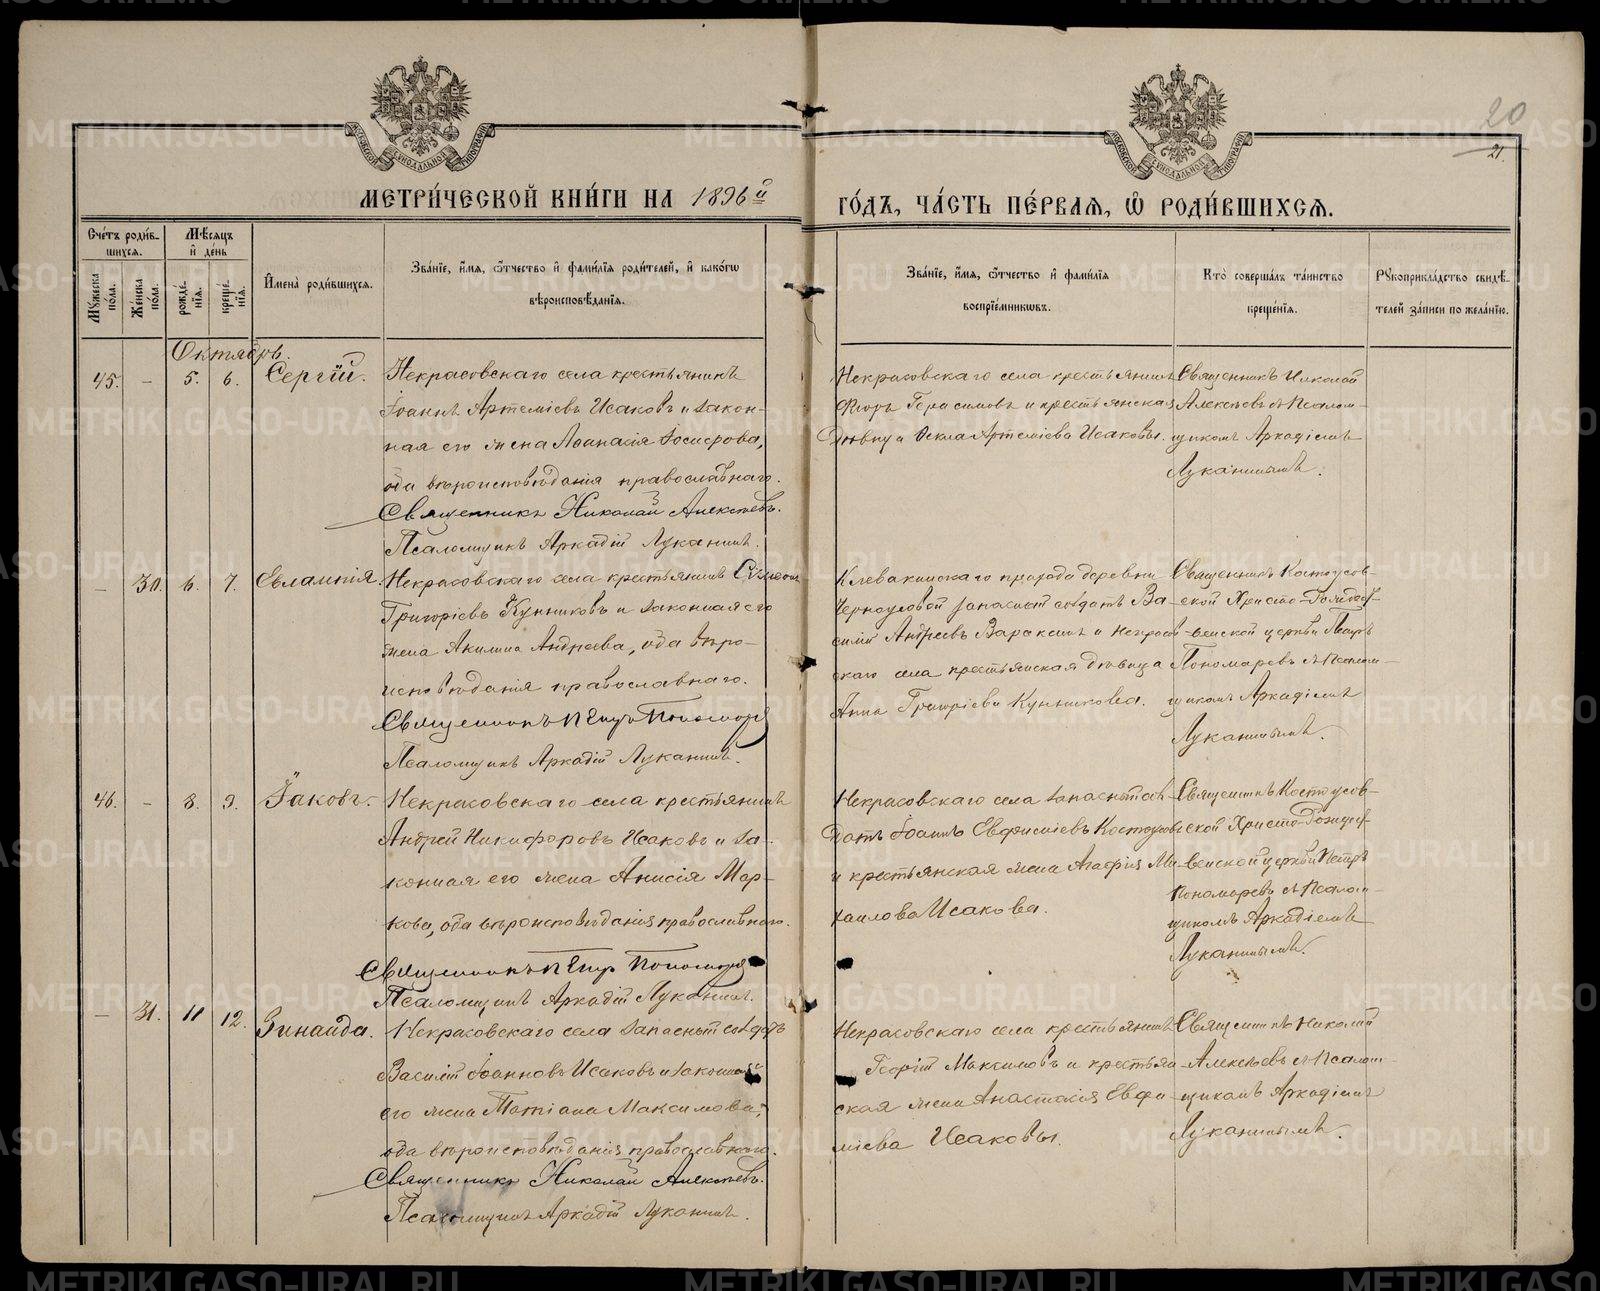 20
21.
МЕТРИ́ЧЕСКОЙ КНИ́ГИ НА 1896 й
ГО́ДЪ, ЧА́СТЬ ПЕ́РВАЯ, Ѽ РОДИ́ВШИХСЯ.
Сче́тъ роди́в-
шихся.
Мѣ́сяцъ
и҆ де́нь
Му́жеска по́ла.
Же́нска по́ла.
рожде́-
нїя.
креще́-
нїя.
И҆мена̀ роди́вшихся.
Зва́нїе, и҆́мя, ѻ҆́тчество и҆ фами́лїя роди́телей, и҆ како́гѡ
вѣроисповѣ́данїя.
Зва́нїе, и҆́мя, ѻ҆́тчество и҆ фами́лїя
воспрїе́мникѡвъ.
Кто̀ соверша́лъ та́инство
креще́нїя.
Рꙋкоприкла́дство свидѣ́-
телей за́писи по жела́нїю.
Октябрь.
45. – 5. 6. Сергій.
Некрасовскаго села крестьянинъ
Іоаннъ Артеміевъ Исаковъ и закон-
ная его жена Афанасія
оба вѣроисповѣданія православнаго.
Священникъ Николай Алексѣевъ.
Псаломщикъ Аркадій Луканинъ.
Некрасовскаго села крестьянинъ
Герасимовъ и крестьянская
дѣвица Фекла Артеміева Исаковы.
Священникъ Николай
Алексѣевъ съ Псалом-
щикомъ Аркадіемъ
Луканинымъ.
– 30. 6. 7. Евлампія.
Некрасовскаго села крестьянинъ Симеонъ
Григоріевъ Кунниковъ и законная его
жена Акилина Андреева, оба вѣро-
исповѣданія православнаго.
Священникъ Петръ Пономаревъ
Псаломщикъ Аркадій Луканинъ.
Клевакинскаго прихода деревни
Черноусовой запасный солдатъ Ва-
силій Андреевъ Вараксинъ и Некрасов-
скаго села крестьянская дѣвица
Анна Григоріева Кунникова.
Священникъ Костоусов-
ской Христо-Рождест-
венской церкви Петръ
Пономаревъ съ Псалом-
щикомъ Аркадіемъ
Луканинымъ.
46. – 8. 9. Іаковъ.
Некрасовскаго села крестьянинъ
Андрей Никифоровъ Исаковъ и за-
конная его жена Анисія Мар-
кова, оба вѣроисповѣданія православнаго.
Священникъ Петръ Пономаревъ
Псаломщикъ Аркадій Луканинъ.
Некрасовскаго села запасный сол-
датъ Іоаннъ Евфиміевъ Костоусовъ
и крестьянская жена Агафія Ми-
хаилова Исакова.
Священникъ Костоусов-
ской Христо-Рождест-
венской церкви Петръ
Пономаревъ съ Псалом-
щикомъ Аркадіемъ
Луканинымъ.
– 31. 11 12. Зинаида.
Некрасовскаго села запасный солдатъ
Василій Іоанновъ Исаковъ и законная
его жена Татіана Максимова,
оба вѣроисповѣданія православнаго.
Священникъ Николай Алексѣевъ.
Псаломщикъ Аркадій Луканинъ.
Некрасовскаго села крестьянинъ
Георгій Максимовъ и крестьян-
ская жена Анастасія Евфи-
міева Исаковы.
Священникъ Николай
Алексѣевъ съ Псалом-
щикомъ Аркадіемъ
Луканинымъ.
METRIKI.GASO-URAL.RU